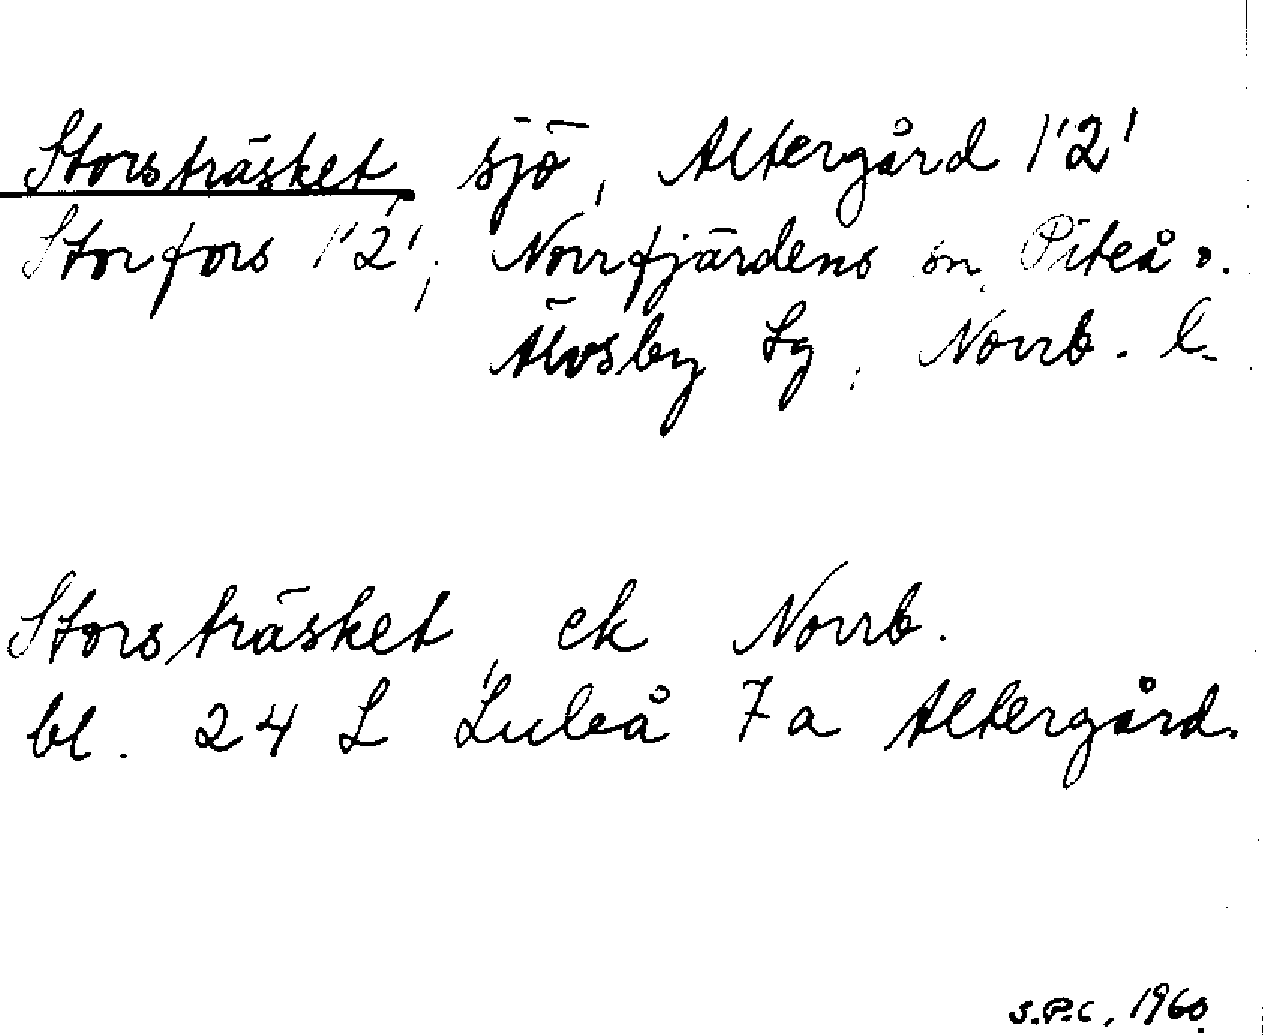 Storsträsket sjö, Altergård 1'2'
Storfors 1'2', Norrfjärdens sn, Piteå o.
Älvsby lg, Norrb. l.
Storsträsket, ek Norrb.
bl. 24 L Luleå 7a Altergård.
S.P.C, 1960